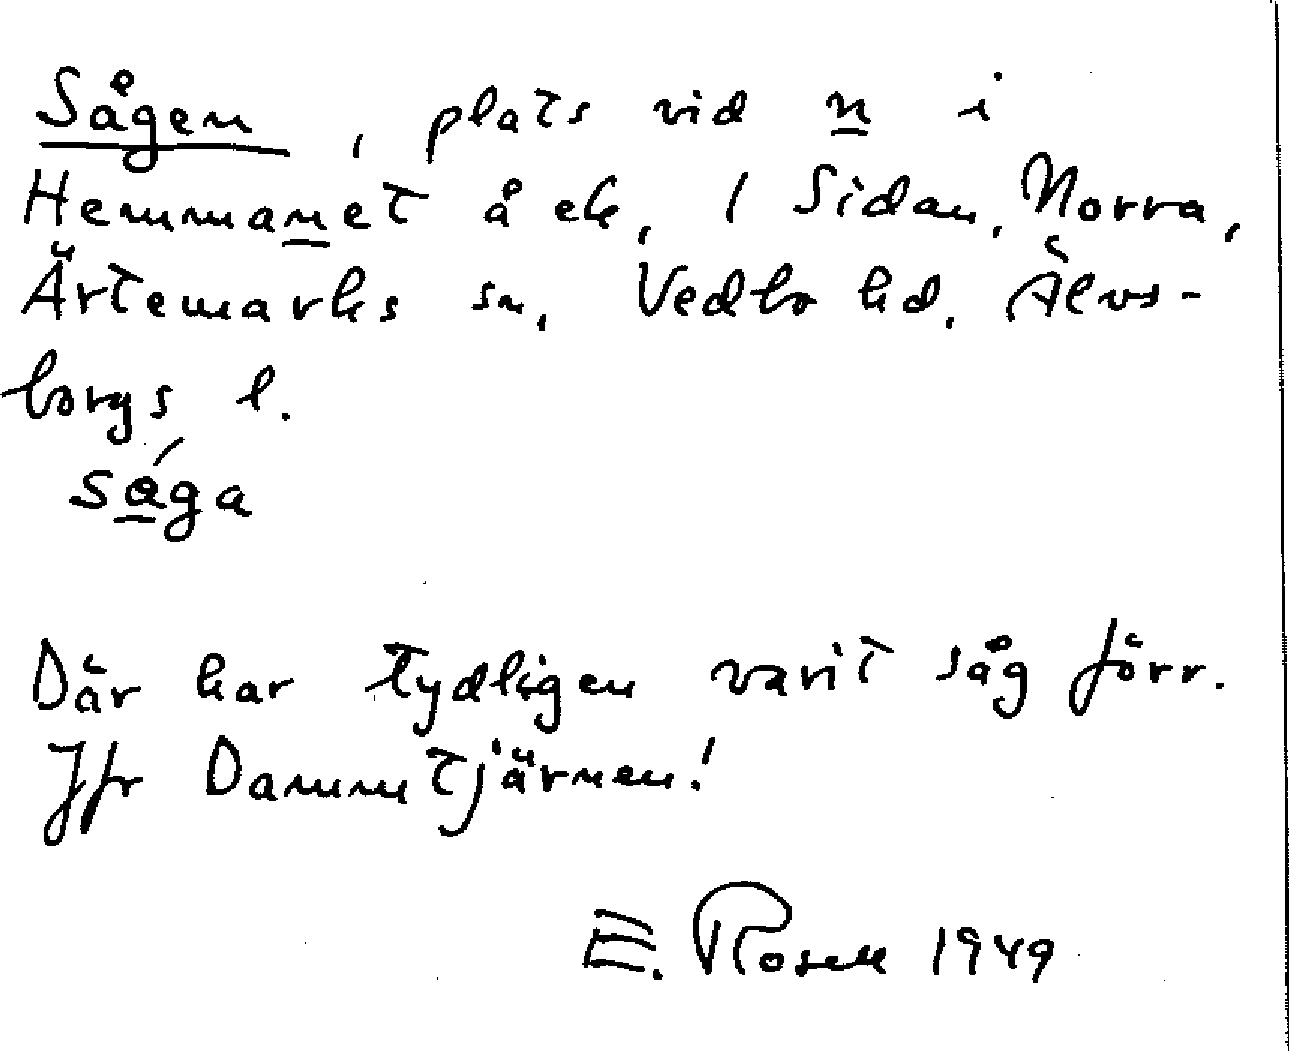 Sågen, plats vid n i
Hemmanet å ek, 1 Sidan, Norra,
Ärtemarks sn, Vedbo hd. Älvs-
borgs l.
såga
Där har tydligen varit såg förr.
Jfr Dammtjärnen!
E. Rosell 1949